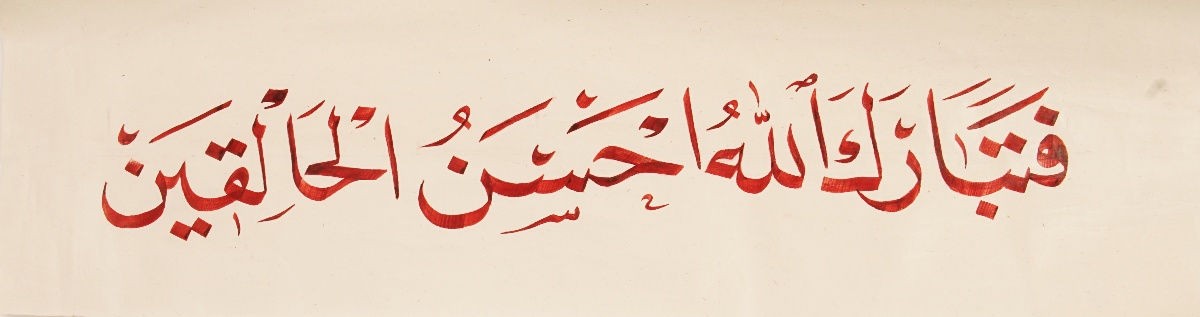 فَتَبَارَكَ ٱللّٰهُ احْسَنُ الْخَالِقِيَنْ